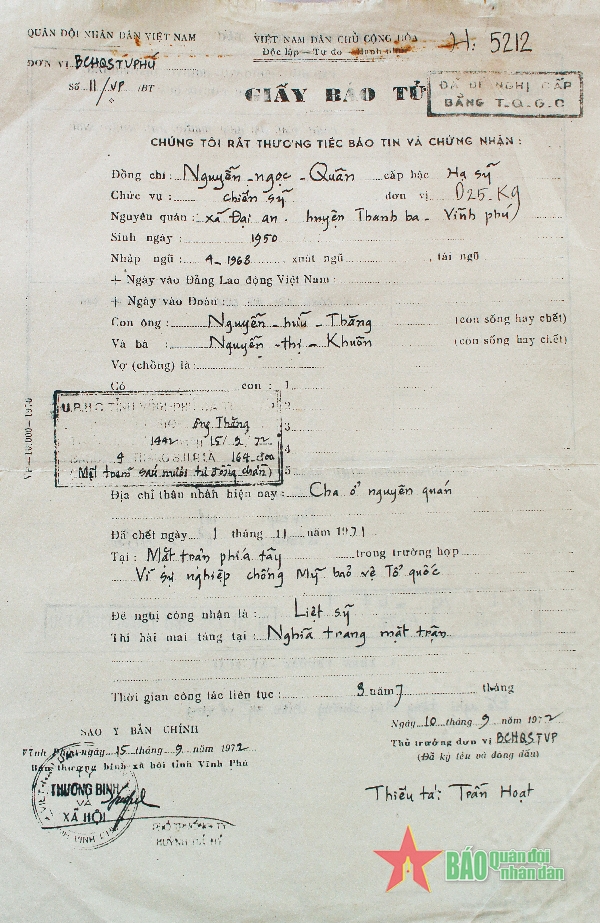 QUÂN ĐỘI NHÂN DÂN VIỆT NAM
VIỆT NAM DÂN CHỦ CỘNG HÒA
H: 5212
Độc lập - Tự do - Hạnh phúc
ĐƠN VỊ BCHQSTVPHÚ
Số 11/VP /BT
GIẤY BÁO TỬ
ĐÃ ĐỀ NGHỊ CẤP
BẰNG T.Q.G.C
CHÚNG TÔI RẤT THƯƠNG TIẾC BÁO TIN VÀ CHỨNG NHẬN :
Đồng chí : Nguyễn - ngọc - Quân cấp bậc Hạ sỹ
Chức vụ : chiến sỹ đơn vị D25. KQ
Nguyên quán : xã Đại an. huyện Thanh ba - Vĩnh phú
Sinh ngày : 1950
Nhập ngũ : 4-1968 xuất ngũ , tái ngũ
+ Ngày vào Đảng Lao động Việt Nam :
+ Ngày vào Đoàn :
Con ông : Nguyễn - hữu - Thăng (con sống hay chết)
Và bà : Nguyễn - thị - Khuôn (con sống hay chết)
Vợ (chồng) là :
Có con : 1
2
3
4
5
ông Thăng
1442 15/9/72
4 164
(Một trăm sáu mươi tư đồng chẵn)
Địa chỉ thân nhân hiện nay : Cha ở nguyên quán
Đã chết ngày 1 tháng 11 năm 1971
Tại : Mặt trận phía tây trong trường hợp
Vì sự nghiệp chống Mỹ bảo vệ Tổ quốc
Đề nghị công nhận là : Liệt sỹ
Thi hài mai táng tại : Nghĩa trang mặt trận
Thời gian công tác liên tục : 3 năm 7 tháng
SAO Y BẢN CHÍNH
Vĩnh Phú ngày 15 tháng 9 năm 1972
Ban thương binh xã hội tỉnh Vĩnh Phú
Ngày 10 tháng 9 năm 1972
Thủ trưởng đơn vị BCHQSTVP
(Đã ký tên và đóng dấu)
THƯƠNG BINH
VÀ
XÃ HỘI
Thiếu tá: Trần Hoạt
BÁO quân đội
nhân dân